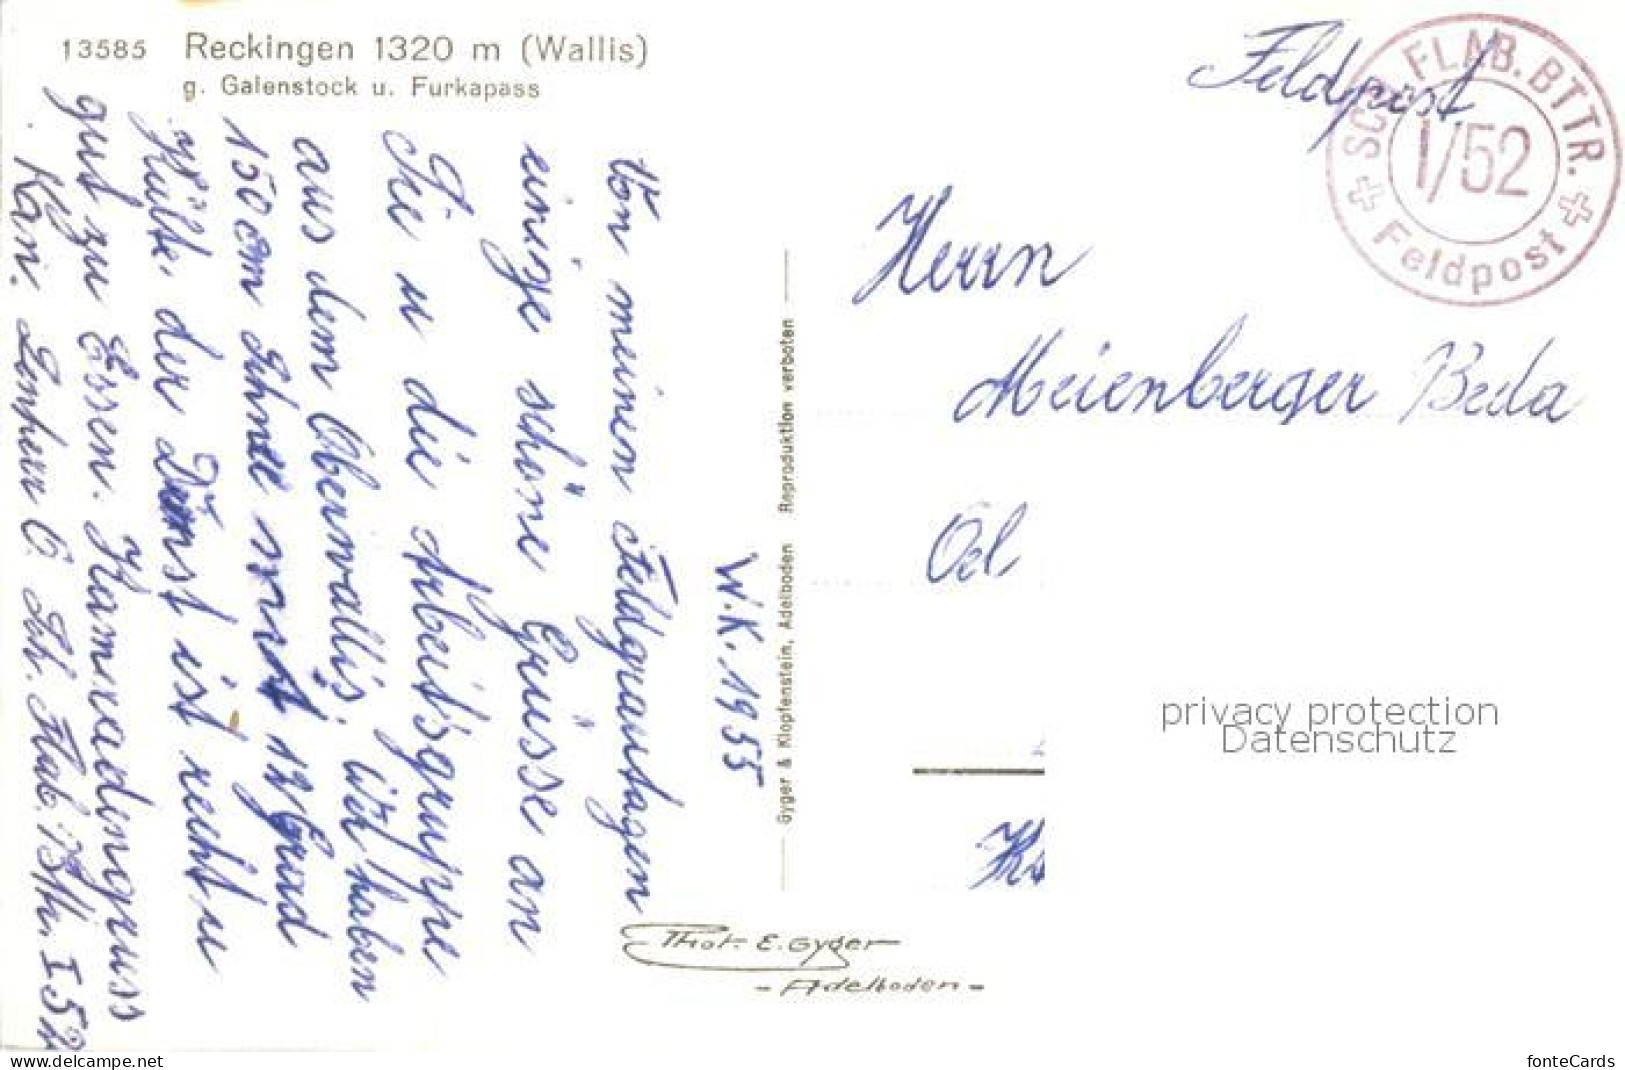 13585 Reckingen 1320 m (Wallis)
g. Galenstock u. Furkapass
W.K. 1955
Von meinen Feldgrautagen
einige schöne Grüsse an
Sie u die Arbeitsgruppe
aus dem Oberwallis. Wir haben
150 cm Schnee sonst 12 Grad
Kälte. der Dienst ist recht u
gut zu Essen. Kameradengruss
Kan. O. Sch. Flab. Bttr. I 52
Gyger & Klopfenstein, Adelboden Reproduktion verboten
Phot. E. Gyger
- Adelboden -
Feldpost.
SCH. FLAB. BTTR.
I/52
Feldpost
Herrn
Meienberger Beda
privacy protection
Datenschutz
www.delcampe.net
fonteCards